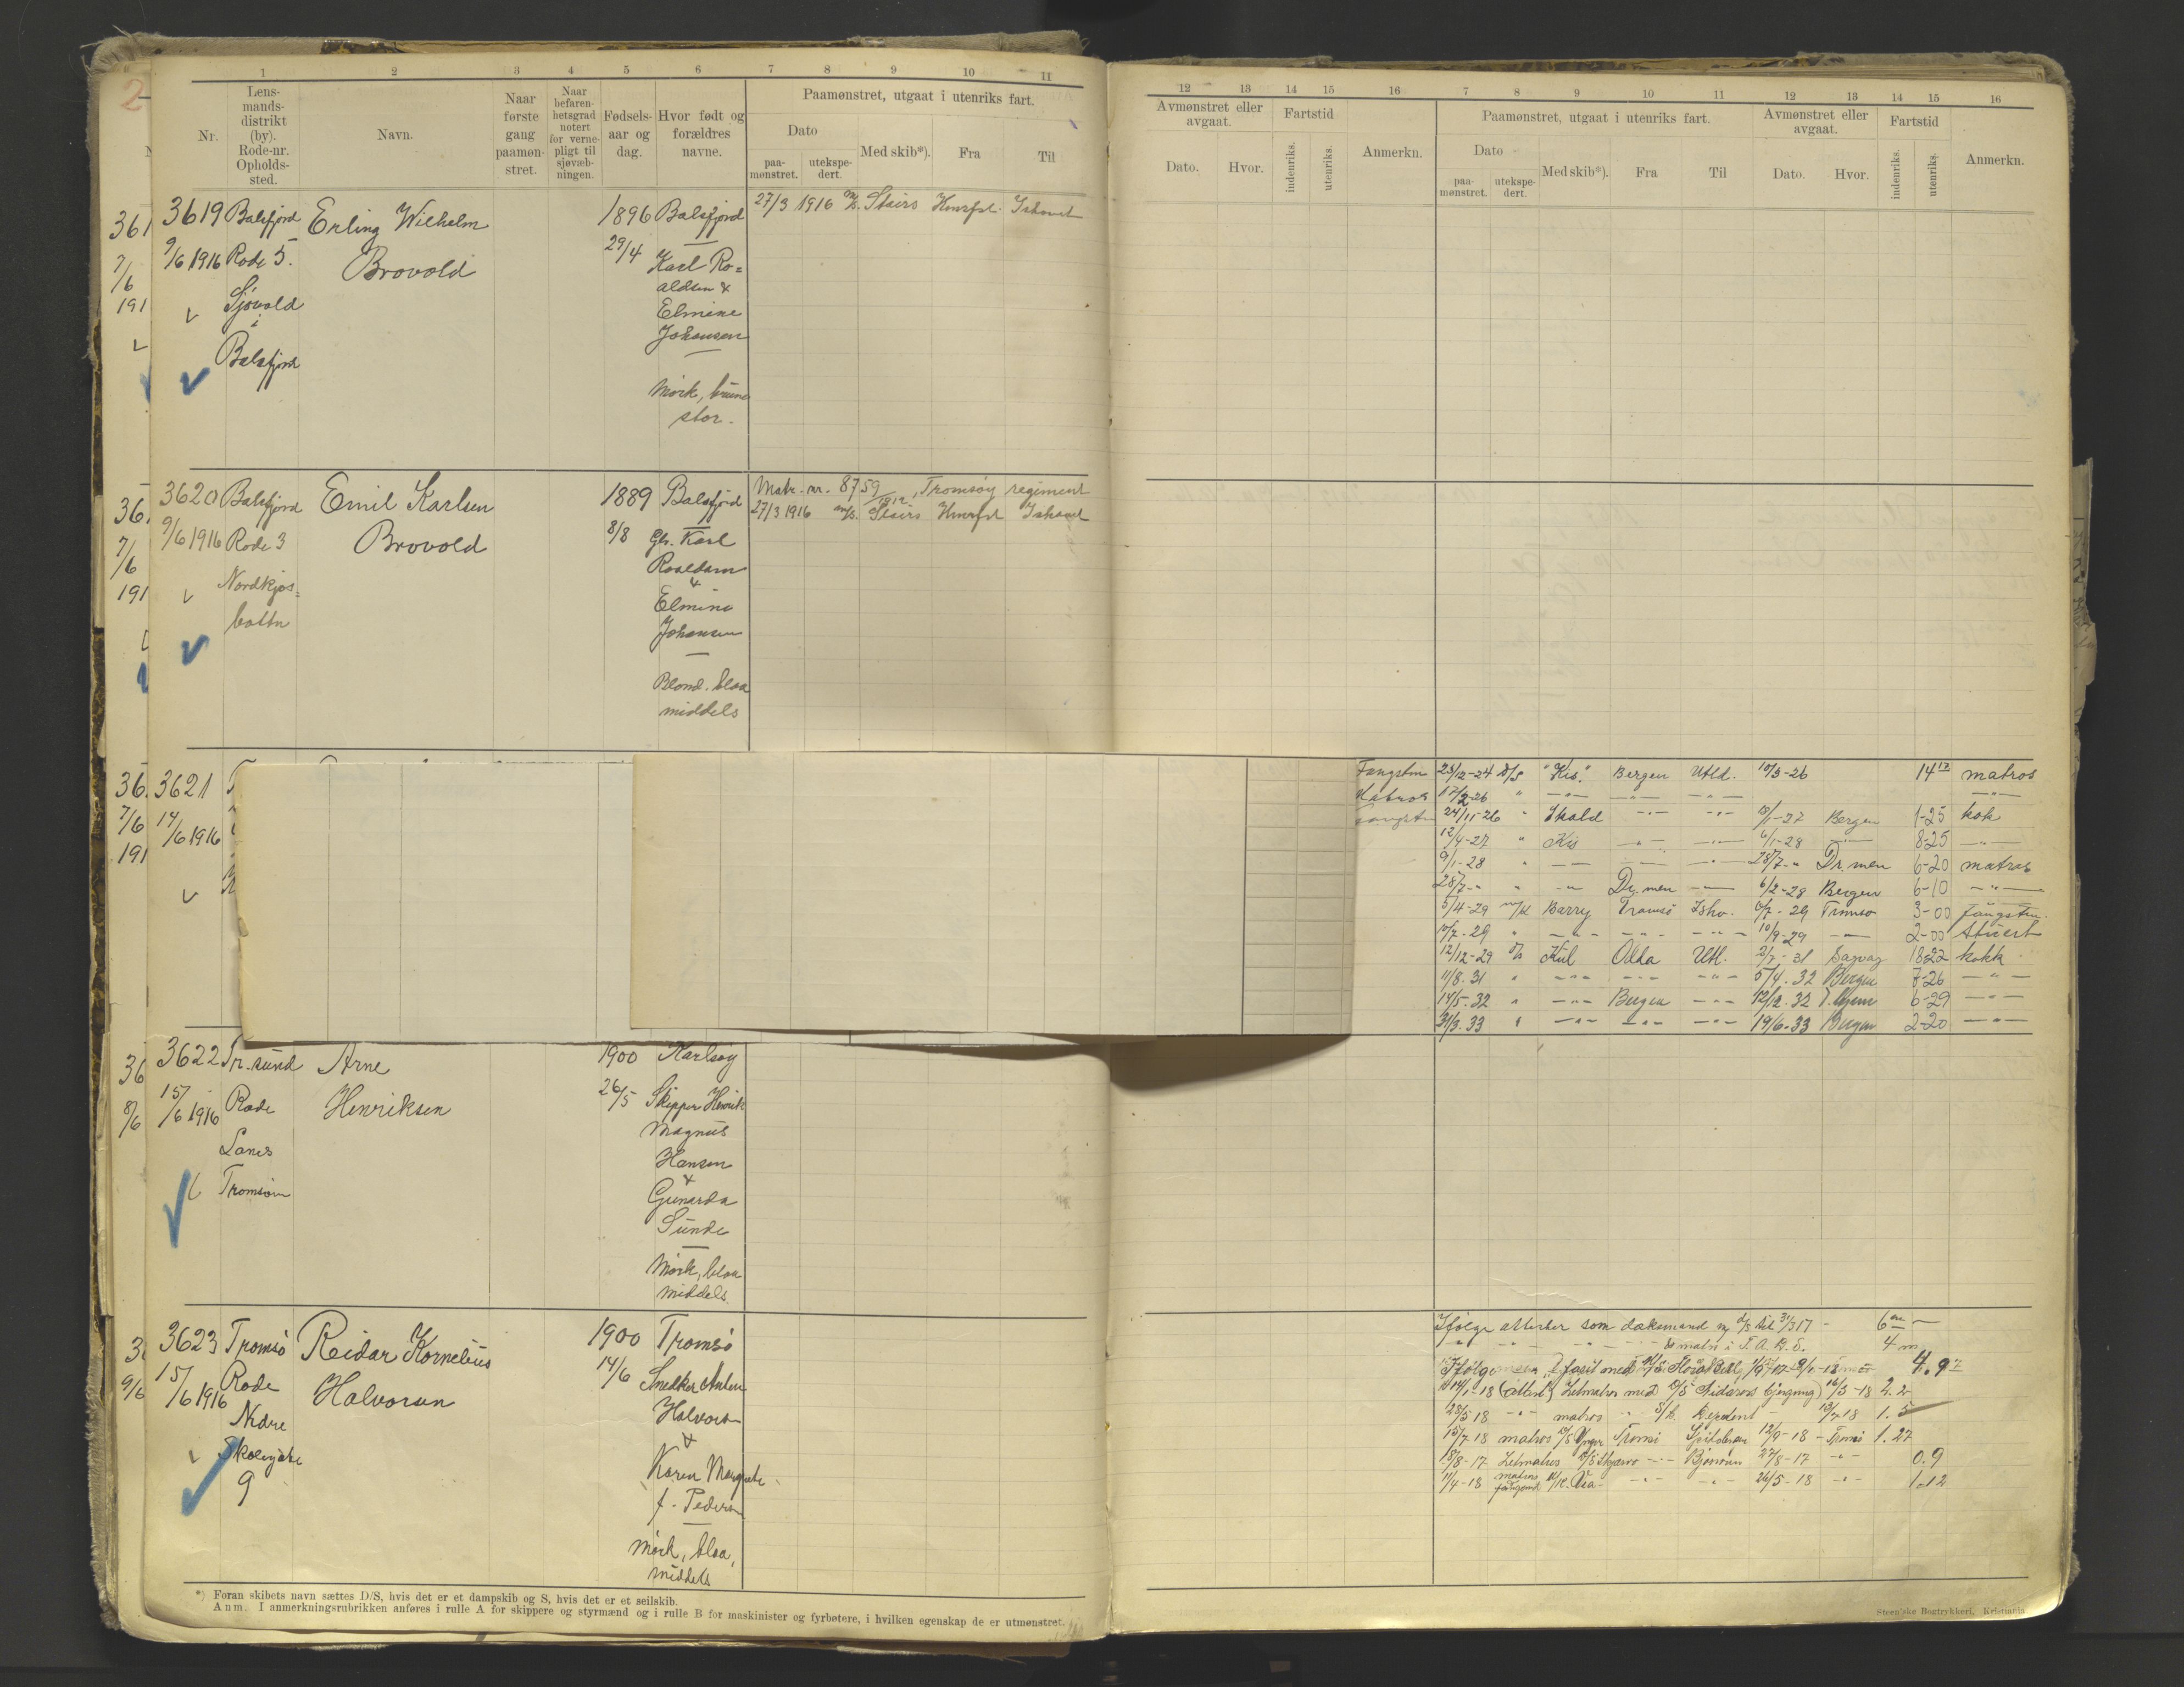 1 2 3 4 5 6 7 8 9 10 11
Nr.
Lens-
mands-
distrikt
(by).
Rode-nr.
Opholds-
sted.
Navn.
Naar
første
gang
paamøn-
stret.
Naar
befaren-
hetsgrad
notert
for verne-
pligt til
sjøvæb-
ningen.
Fødsels-
aar og
dag.
Hvor født og
forældres
navne.
Paamønstret, utgaat i utenriks fart.
Dato
paa-
mønstret.
utekspe-
dert.
Med skib*).
Fra
Til
12 13 14 15 16 7 8 9 10 11 12 13 14 15 16
Avmønstret eller
avgaat.
Dato.
Hvor.
Fartstid
indenriks.
utenriks.
Anmerkn.
Paamønstret, utgaat i utenriks fart.
Dato
paa-
mønstret.
utekspe-
dert.
Med skib*).
Fra
Til
Avmønstret eller
avgaat.
Dato.
Hvor.
Fartstid
indenriks.
utenriks.
Anmerkn.
2
361
7/6
191
3619 Balsfjord Erling Wilhelm 1896 Balsfjord 27/3 1916 Ishavet
9/6 1916 Rode 5. Brovold 29/4 Karl Ro=
aldsen &
Sjøvold Elmine
i Johansen
Balsfjord
Mörk, brune
stor.
36
7/6
191
3620 Balsfjord Emil Karlsen 1889 Balsfjord Matr. nr. 8759 / 1912, Tromsøy regiment
27/3 1916 Ishavet
9/6 1916 Rode 3 Brovold 8/8 Karl
Roaldsen
Nordkjos= &
botn Elmine
Johansen
Blond. blaa
middels
36
7/6
191
3621
14/6 1916
Fangstm 23/12-24 D/S "Kis" Bergen Utld. 10/3-26 14 12 matros
Matros 17/2-26 " —"— —"— —"— —"—
24/11-26 " Skald —"— —"— 18/1-27 Bergen 1-25 kok
12/4-27 " Kis —"— —"— 6/1-28 —"— 8-25 —"—
9/1-28 " —"— —"— —"— 28/7-" Dr.men 6-20 matros
28/7-" " —"— Dr.men —"— 6/2-28 Bergen 6-10 —"—
5/4-29 m/k Barry Tromsö Ishv. 6/7-29 Tromsö 3-00 Fangstm.
10/7-29 " —"— —"— —"— 10/9-29 —"— 2-00 Stuert
12/12-29 D/S Kul Odda Utl. 3/7-31 Sagvag 18-22 kokk
11/8.31 " —"— —"— —"— 5/4.32 Bergen 7-26 —"—
14/5.32 " —"— Bergen —"— 12/12.32 6-29 —"—
31/3.33 " —"— —"— —"— 19/6.33 Bergen 2-20 —"—
36
8/6
3622 Tr.sund Arne 1900 Karlsøy
15/6 1916 Rode Henriksen 26/5 Skipper Henrik
Magnus
Lanes Hansen
&
Tromsøen Gunarda
Sunde
Mörk, blaa
middels.
3
9/6
3623 Tromsö Reidar Kornelius 1900 Tromsö
15/6 1916 Rode Halvorsen 14/6 Snedker Anton
Nedre Halvorsen
Skolegate &
9 Karen Margrete
f. Pedersen
Mörk, blaa,
middels
Ifölge attester som dæksmand til 31/3 17 - 6 m —
4 m
Ifölge 4. 9
14/1-18 (attest) Letmatros med D/S Nidaros 16/3-18 2. 2
28/5 18 —"— matros 13/7 18 1. 5
15/7 18 matros D/S Tromsö 12/9-18 - Tromsö 1. 27
18/8-17 Letmatros —"— 27/8-17 —"— 0. 9
11/4-18 matros —"— —"— 26/5-18 —"— 1. 12
*) Foran skibets navn sættes D/S, hvis det er et dampskib og S, hvis det er et seilskib.
Anm. I anmerkningsrubrikken anføres i rulle A for skippere og styrmænd og i rulle B for maskinister og fyrbøtere, i hvilken egenskap de er utmønstret.
Steen'ske Bogtrykkeri, Kristiania